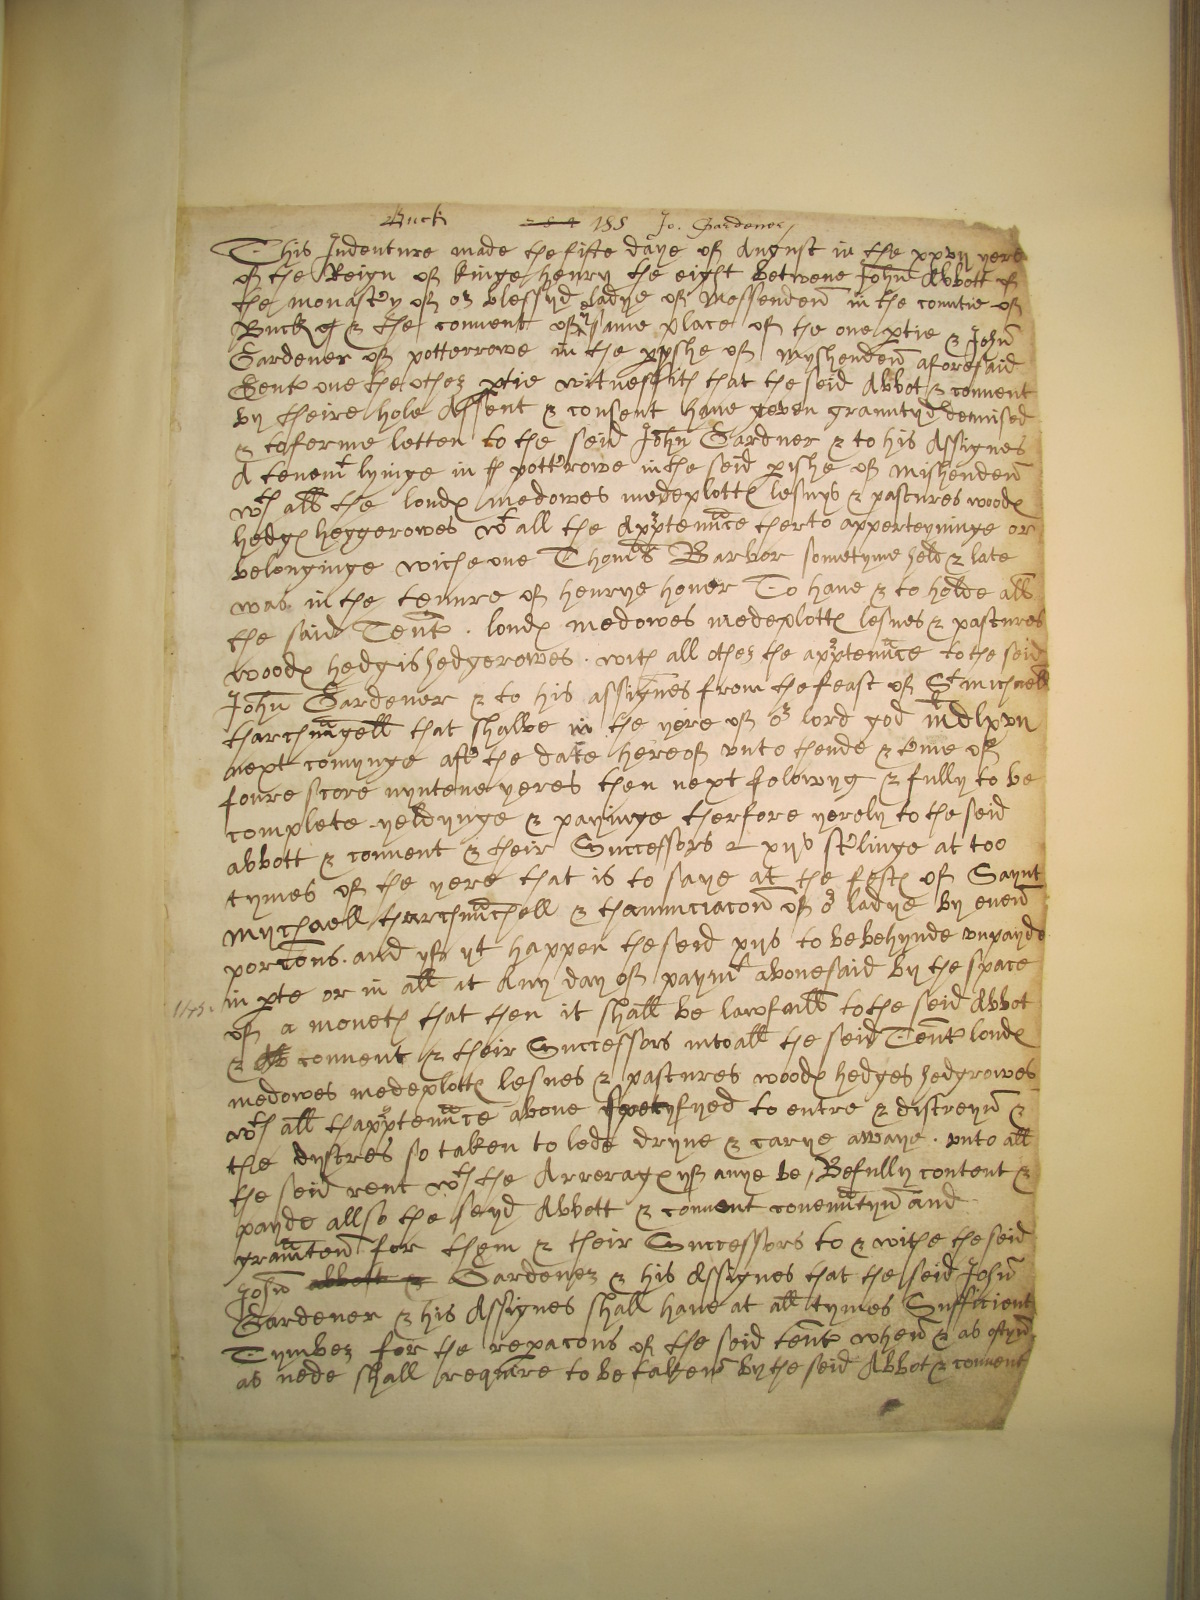 Buck 188 Jo. Gardener
This Indenture made the fifte daye off August in the xxvij yere
off the Reign off kinge henry the eight betwene John Abbott off
the monastry off or blessyd ladye off Messenden in the countie off
Buck & the convent off ye same place off the one ptie & John
Gardener off potterrowe in the pyshe off Myshenden aforesaid
one the other ptie witnessith that the seid Abbot & convent
by theire hole Assent & consent have geven grauntyd demised
& to ferme letten to the seid John Gardner & to his Assignes
A tenemt lyinge in pottrowe in the seid pishe off Mishenden
wth all the londs medowes medeplotts lesuys & pastures woods
hedgs heggerowes wt all the Appurtenance therto apperteyninge or
belonginge wiche one Thomas Barbor sometyme held & late
was in the tenure off henrye hover To have & to holde all
the said Tent londs medowes medeplotts lesues & pastures
woods hedgis hedgerowes with all other the appurtenance to the seid
John Gardener & to his assignes from the feast off St Michaell
tharchangell that shalbe in the yere off or lord god mdlxvij
next comynge aftr the date hereoff vnto thende & tme off
foure score nyntene yeres then next folowyg & fully to be
complete yeldynge & payinge therfore yerely to the seid
abbott & convent & their Successors xijs strlinge at too
tymes off the yere that is to saye at the fests off Saynt
Mychaell tharchanchell & thanunciacon off or ladye by even
porcons and yff yt happen the seid xijs to be behynde vnpayde
in pte or in all at Any day off paymt abovesaid by the space
off a moneth that then it shall be lawfull to the seid Abbot
& convent & their Successors into all the seid Tent londs
medowes medeplotts lesues & pastures woods hedges hedgrowes
wth all thappurtenance above specyfyed to entre & distreyn &
the dystres so taken to lede dryve & carye awaye vnto all
the seid rent wth the Arrerags yff anye be, Be fully content &
payde allso the seyd Abbott & convent covenntyn and
graunten for them & their Successors to & withe the seid
John abbott & Gardener & his Assignes that the seid John
Gardener & his Assignes shall have at all tymes Sufficient
Tymber for the repacons off the seid tent when & as oftyn
as nede shall require to be taken by the seid Abbot & convent